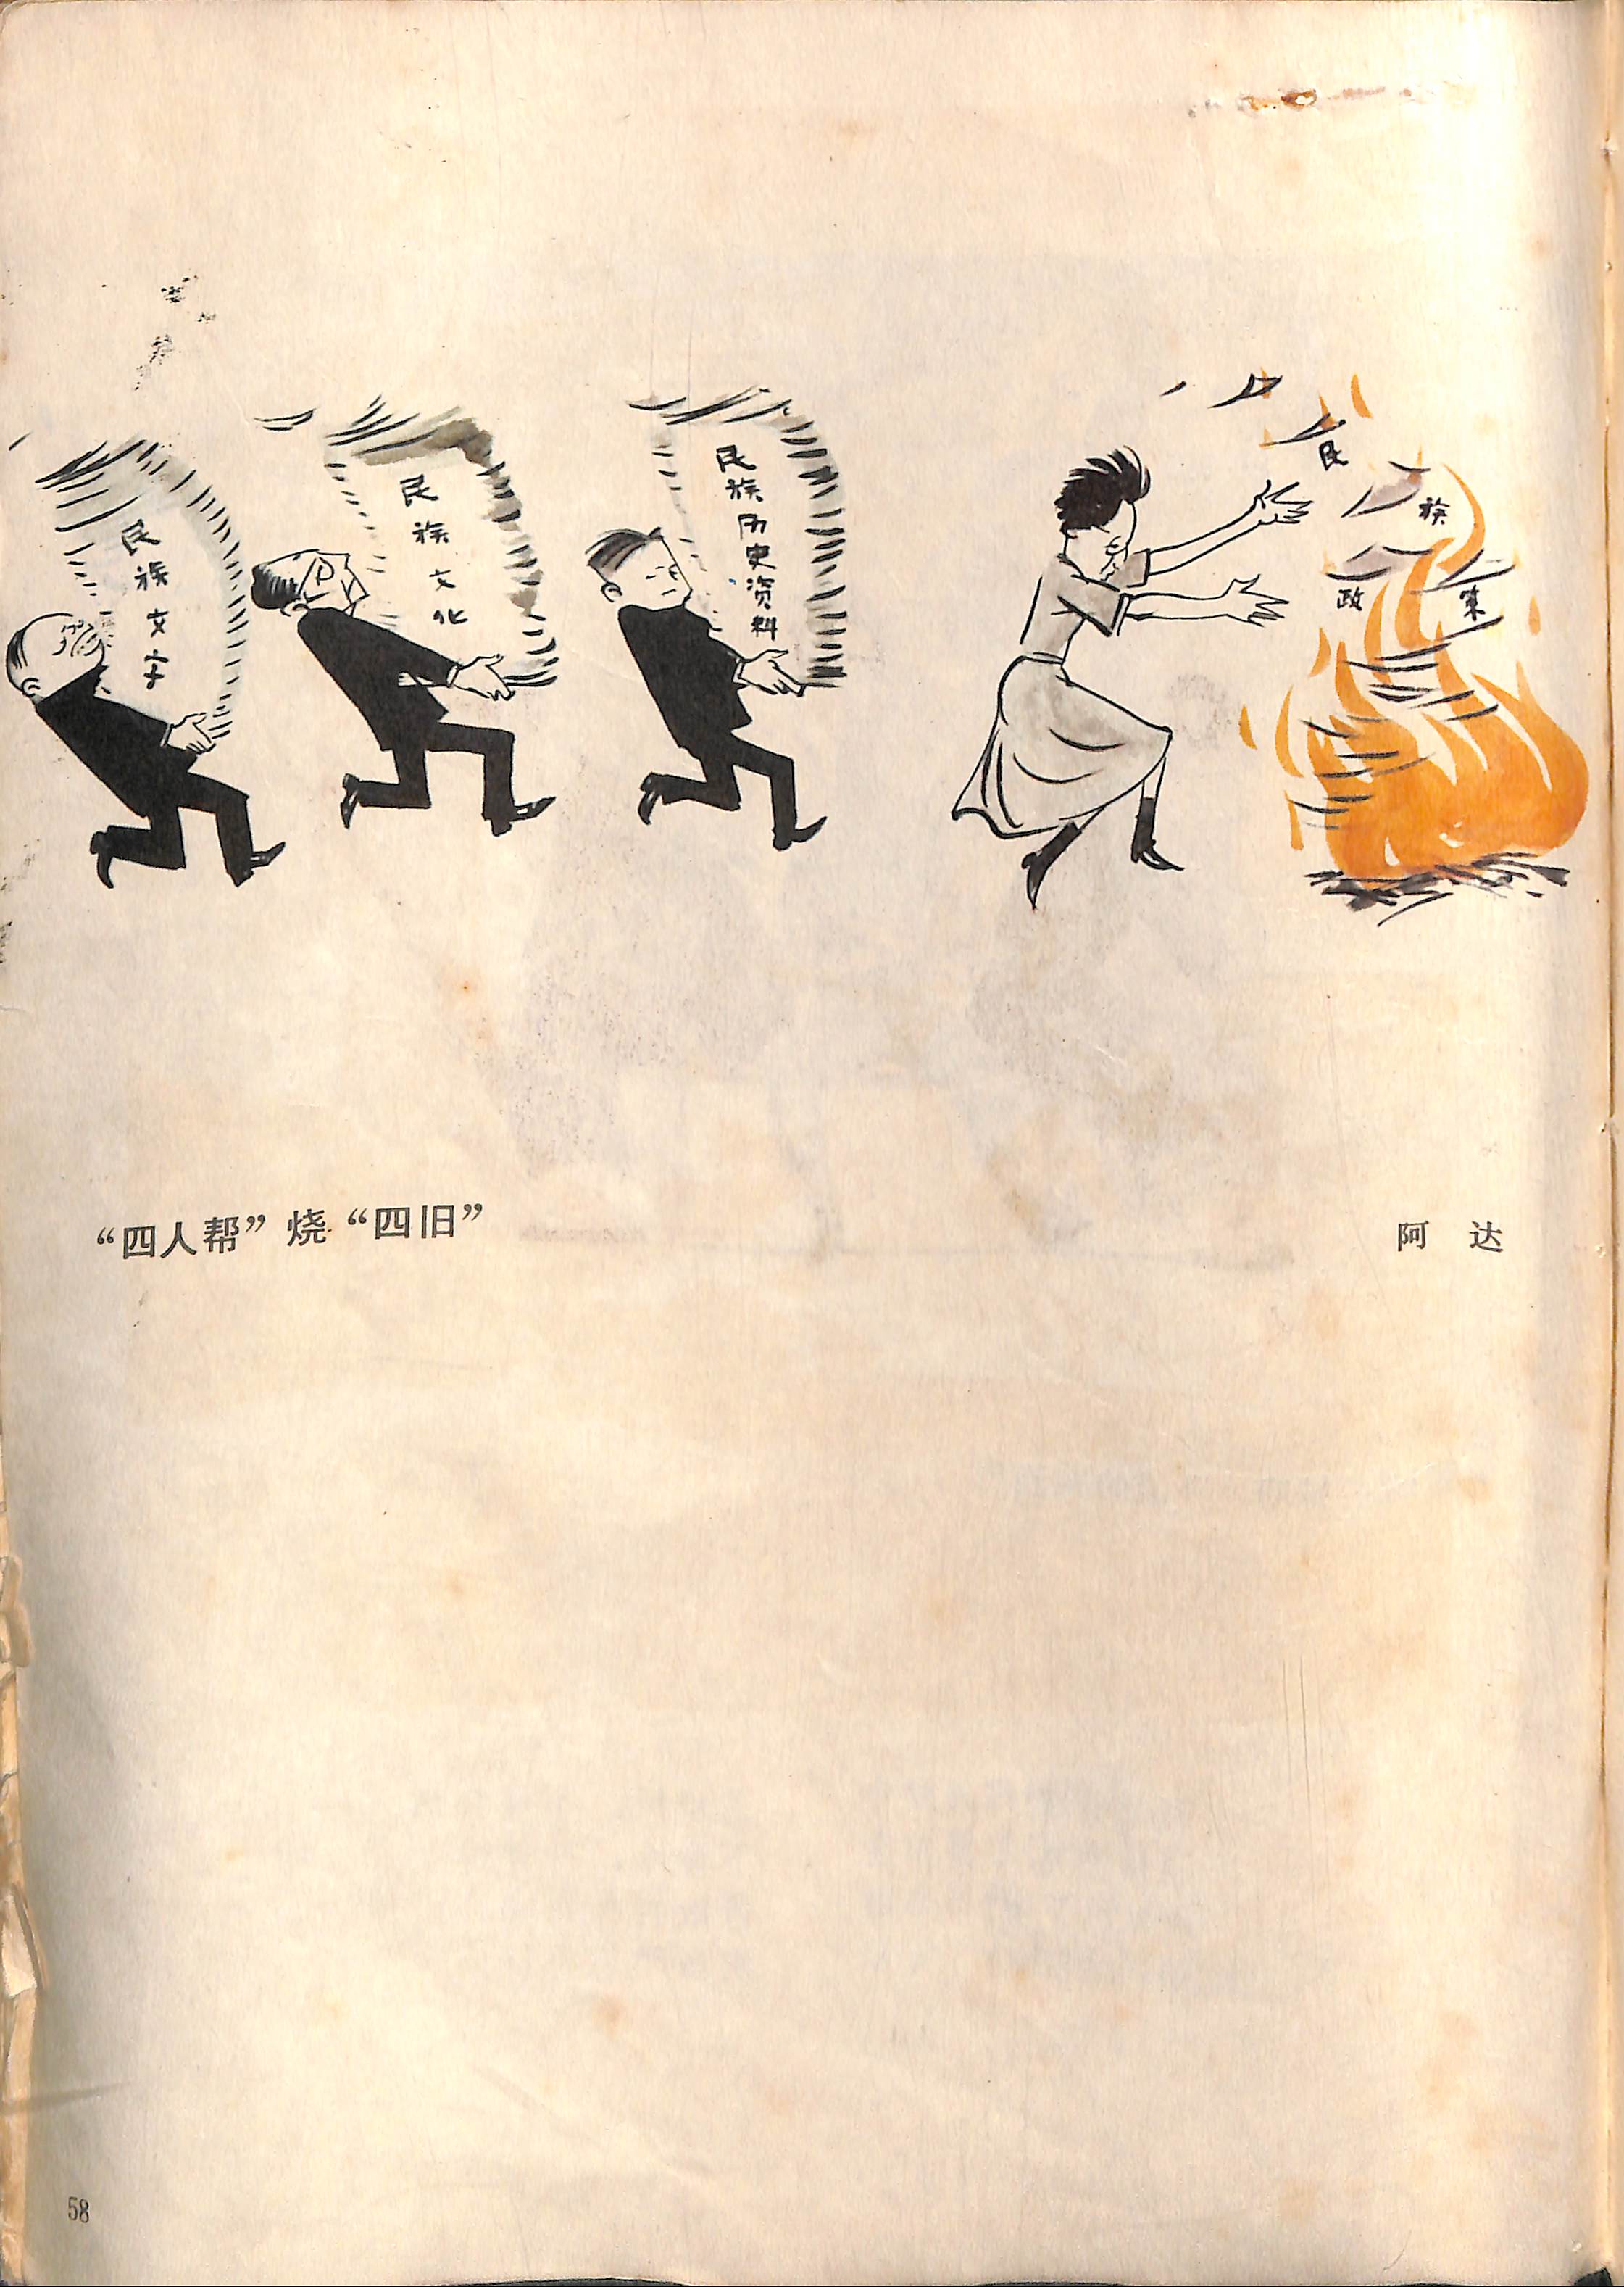 民族文字
民族文化
民族历史资料
民族政策
“四人帮”烧“四旧”
阿达
58